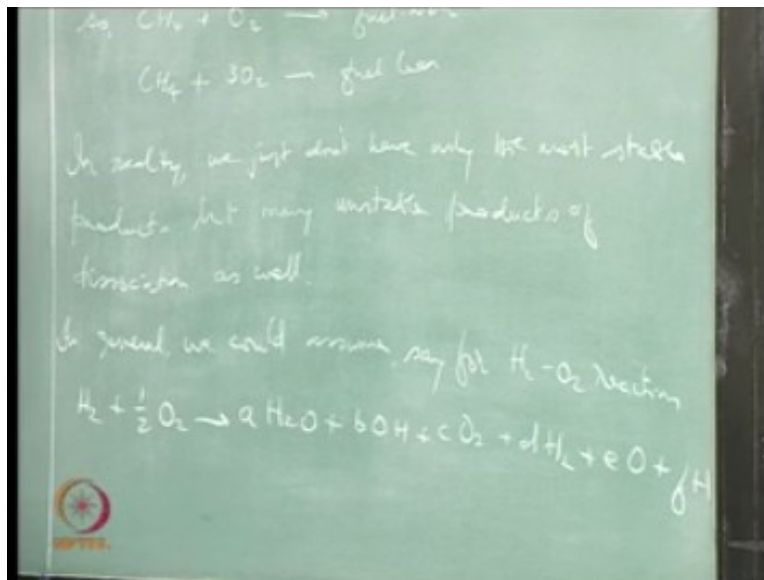 so, CH4 + O2 → fuel-rich
CH4 + 3O2 — fuel lean
In reality, we just don't have only the most stable
products but many unstable products of
dissociation as well.
In general, we could assume, say for H2-O2 reaction
H2 + 1/2 O2 → a H2O + b OH + c O2 + d H2 + e O + f H
NPTEL